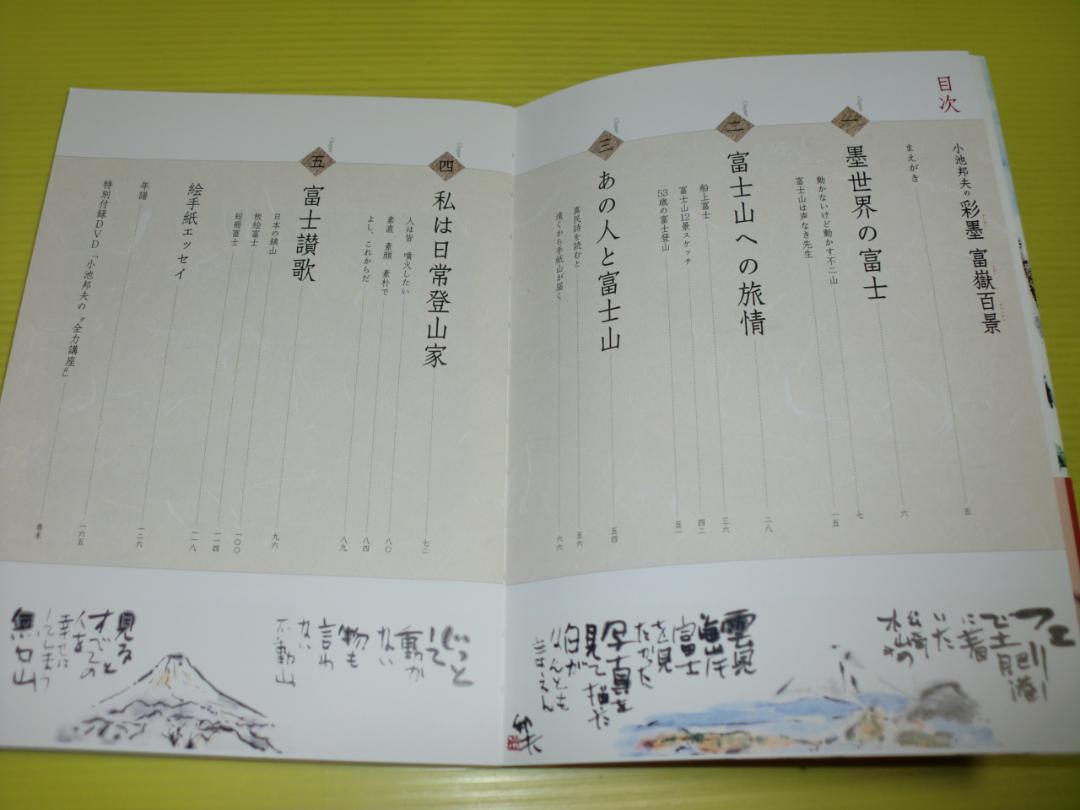 目次
小池邦夫の 彩墨 富嶽百景
五
まえがき
六
Chapter
一
墨世界の富士
七
動かないけど動かす不二山
富士山は声なき先生
一五
Chapter
二
富士山への旅情
二八
船上富士
三六
富士山12景スケッチ
四二
53歳の富士登山
五一
Chapter
三
あの人と富士山
五四
真民詩を読むと
五六
遠くから手紙山が届く
六六
Chapter
四
私は日常登山家
七二
人は皆 噴火したい
八〇
素直 素顔 素朴で
八四
よし、これからだ
八九
Chapter
五
富士讃歌
九六
日本の鎮山
板絵富士
一〇〇
短冊富士
一一四
絵手紙エッセイ
一一八
年譜
一二六
特別付録DVD「小池邦夫の〝全力講座〟」
一六五
巻末
フェリー
で土肥港
に着
いた
雲見
海岸
富士
を見
たかった
写真を
見て描いた
白が
なんとも
じっと
して
動か
ない
物も
言わ
ない
不動山
見る
すべての
人を
幸せに
してしまう
無口山